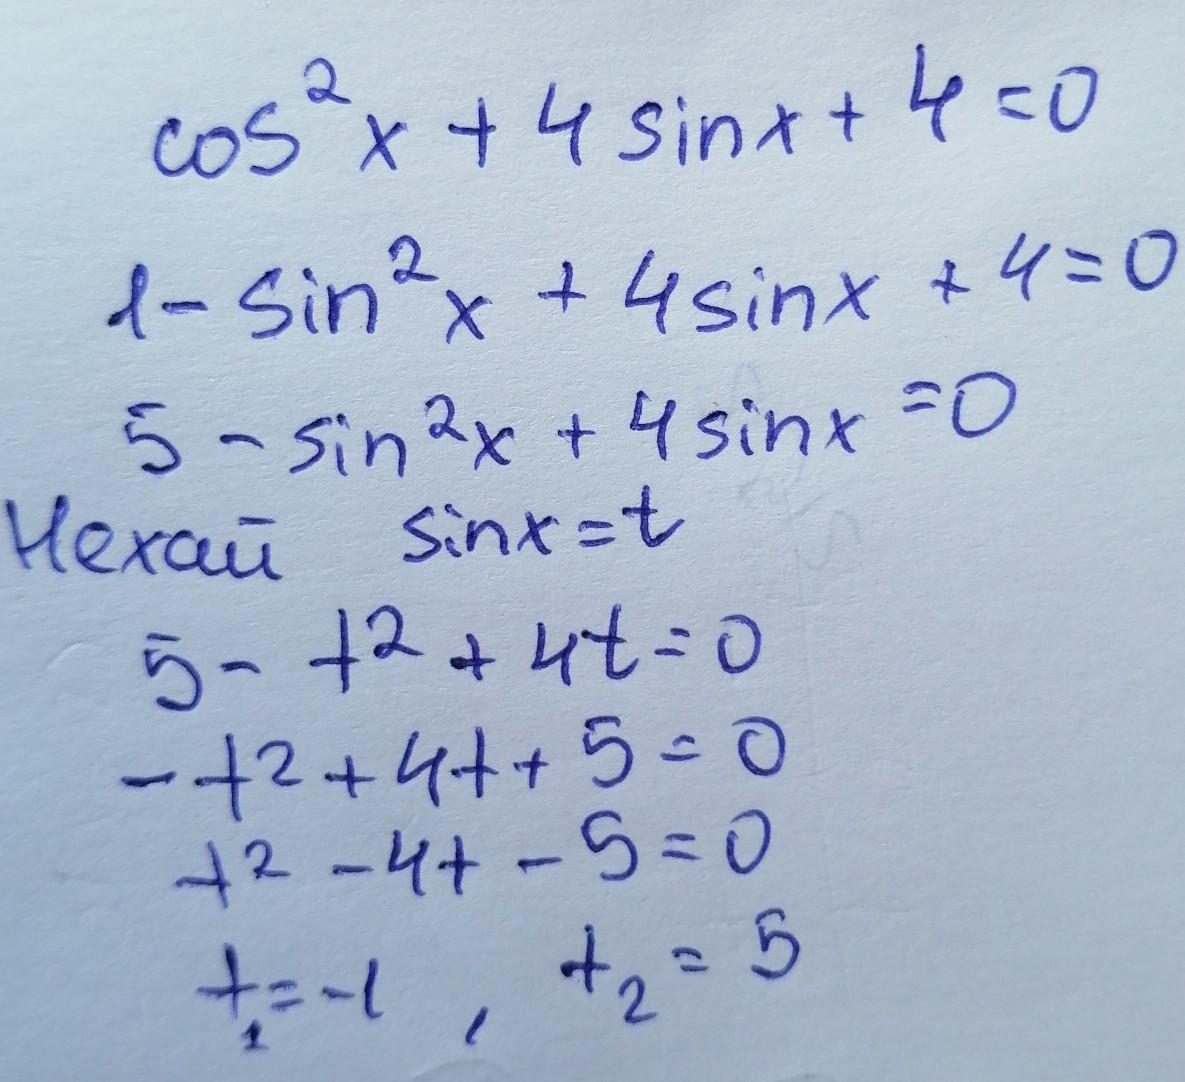 cos²x + 4 sinx + 4 = 0
1 - sin²x + 4sinx + 4 = 0
5 - sin²x + 4 sinx = 0
Нехай sinx = t
5 - t² + 4t = 0
-t² + 4t + 5 = 0
t² - 4t - 5 = 0
t₁ = -1 , t₂ = 5